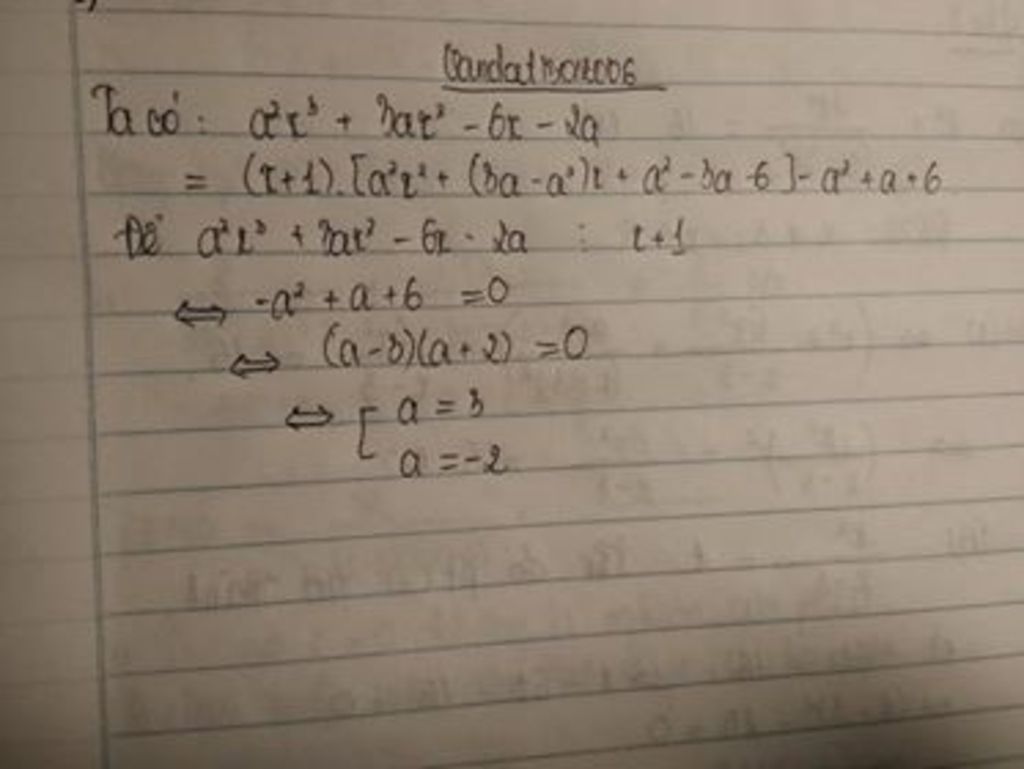 Ta có: a²x³ + 3ax² - 6x - 2a
= (x+1).[a²x² + (3a-a²)x + a² - 3a - 6] - a² + a + 6
Để a²x³ + 3ax² - 6x - 2a ⋮ x+1
⇔ -a² + a + 6 = 0
⇔ (a-3)(a+2) = 0
⇔ [ a = 3
a = -2